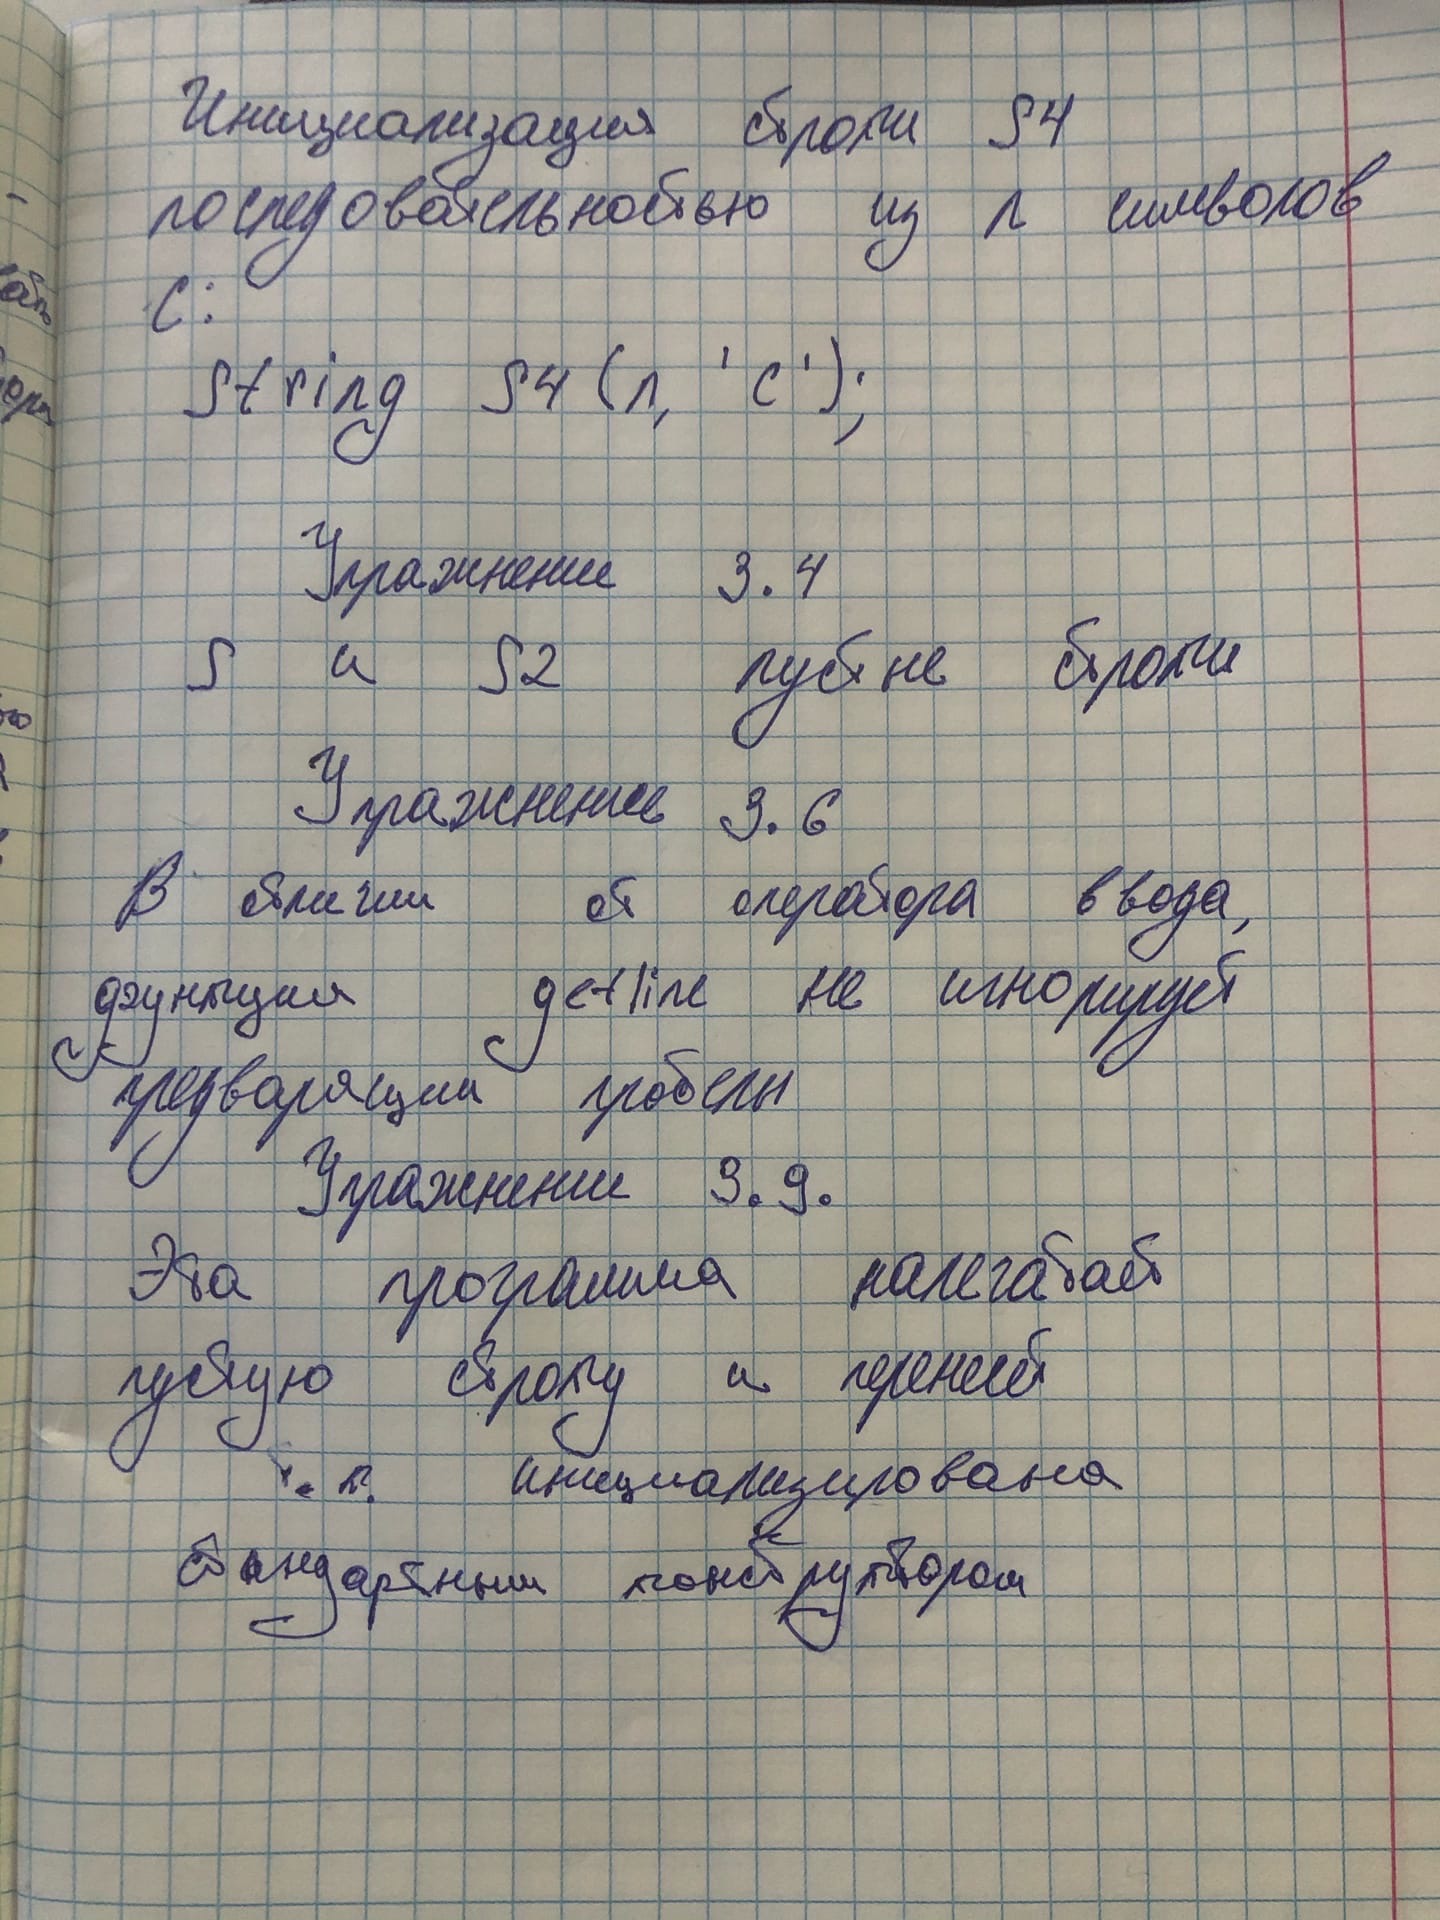 Инициализация строки S4
последовательностью из n символов
C:
string S4(n, 'c');
Упражнение 3.4
S и S2 пустые строки
Упражнение 3.6
В отличии от оператора ввода,
функция getline не игнорирует
предварящии пробелы
Упражнение 3.9.
Эта программа напечатает
пустую строку и
т. к. инициализирована
стандартным конструктором